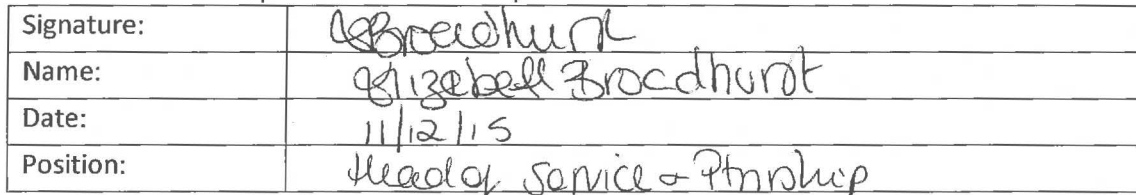 Signature: EBroadhurst
Name: Elizabeth Broadhurst
Date: 11/12/15
Position: Head of Service & Ptnrship